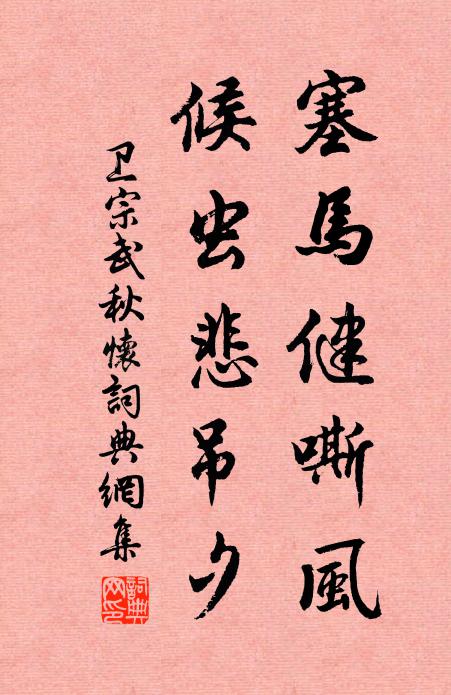 塞馬健嘶風
候虫悲吊夕
卫宗武秋懷詞典網集
詞典網印